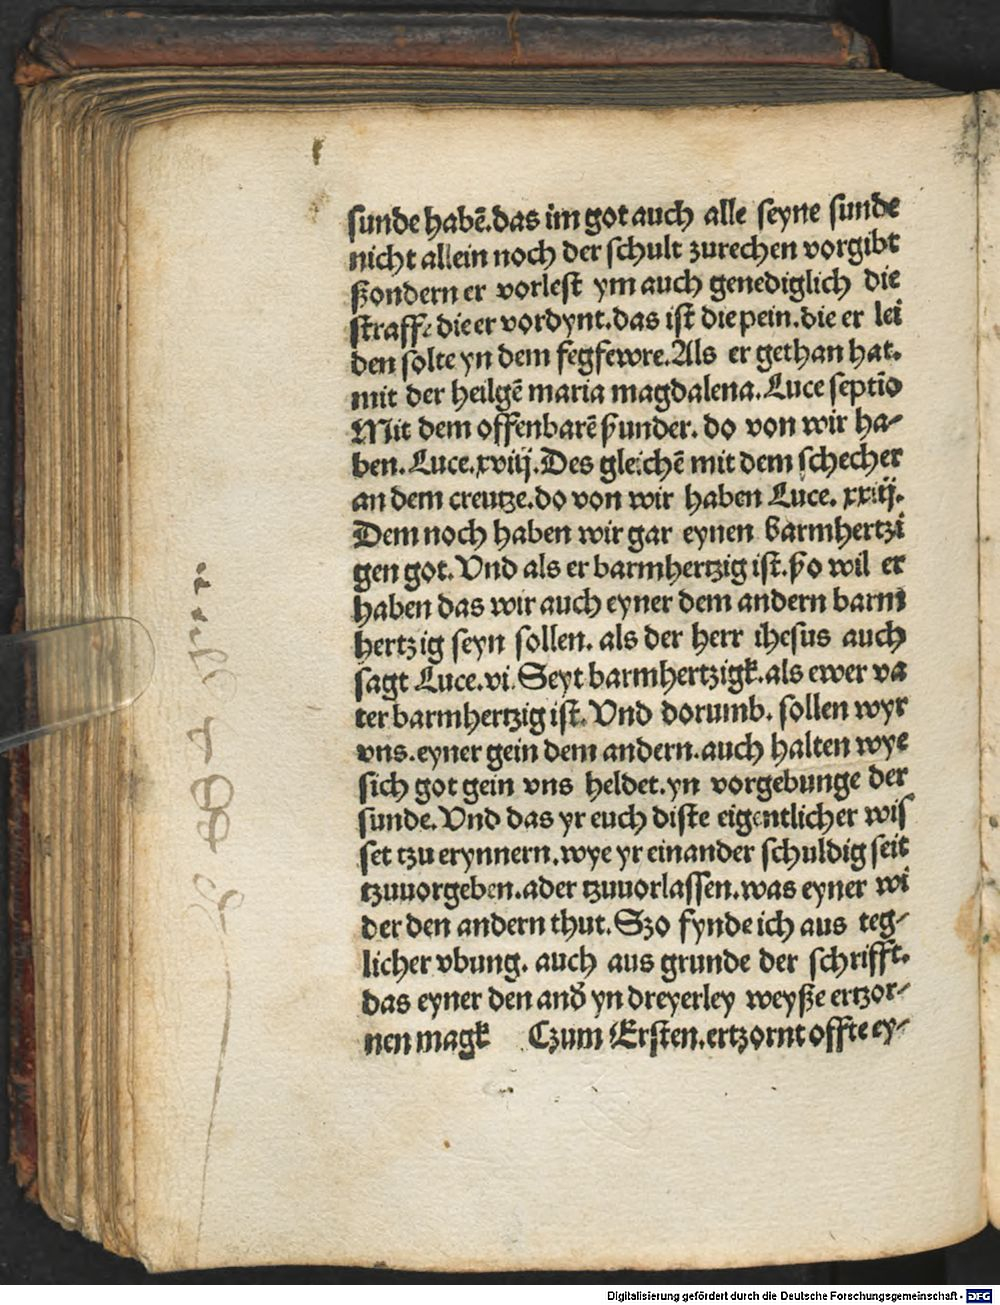 sunde habē.das im got auch alle seyne sunde
nicht allein noch der schult zurechen vorgibt
ßondern er vorlest ym auch genediglich die
straffe die er vordynt.das ist die pein.die er lei
den solte yn dem fegfewre.Als er gethan hat.
mit der heilgē maria magdalena.Luce septīo
Mit dem offenbarē ßunder.do von wir ha-
ben.Luce.xviij.Des gleichē mit dem schecher
an dem creutze.do von wir haben Luce.xxiij.
Dem noch haben wir gar eynen barmhertzi
gen got.Vnd als er barmhertzig ist.ßo wil er
haben das wir auch eyner dem andern barm
hertzig seyn sollen.als der herr ihesus auch
sagt Luce.vi.Seyt barmhertzigk.als ewer va
ter barmhertzig ist.Vnd dorumb.sollen wyr
vns.eyner gein dem andern.auch halten wye
sich got gein vns heldet.yn vorgebunge der
sunde.Vnd das yr euch diste eigentlicher wis
set tzu erynnern.wye yr einander schuldig seit
tzuuorgeben.ader tzuuorlassen.was eyner wi
der den andern thut.Szo fynde ich aus teg-
licher vbung.auch aus grunde der schrifft.
das eyner den andꝰ yn dreyerley weyße ertzor-
nen magk Czum Ersten.ertzornt offte ey-
Digitalisierung gefördert durch die Deutsche Forschungsgemeinschaft - DFG